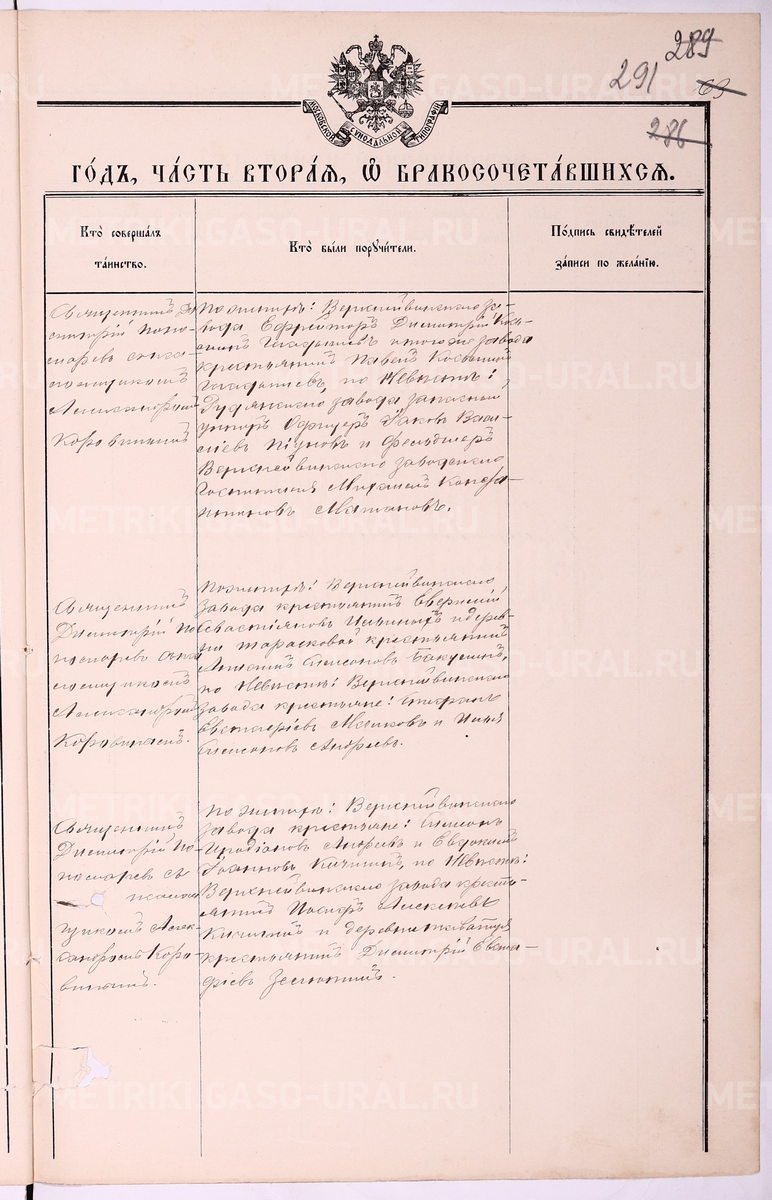 289
291
69
286
МОСКОВСКОЙ СѴНОДАЛЬНОЙ ТИПОГРАФІИ
ГО́ДЪ, ЧА́СТЬ ВТОРА́Я, Ѽ БРАКОСОЧЕТА́ВШИХСЯ.
Кто̀ соверша́лъ
та́инство.
Кто̀ бы́ли поручи́тели.
По́дпись свидѣ́телей
за́писи по жела́нію.
Священникъ Ди-
митрій Поно-
маревъ съ пса-
ломщикомъ
Александромъ
Коровинымъ
По женихѣ: Верхнейвинскаго за-
вода Ефрейторъ Димитрій Козь-
минъ и того же завода
крестьянинъ Павелъ Козьминъ
по Невѣстѣ:
Рудянскаго завода запасный
унтеръ Офицеръ Іаковъ Васи-
ліевъ и Фельдшеръ
Верхнейвинскаго заводскаго
Госпиталя Михаилъ Конста-
нтиновъ
Священникъ
Димитрій По-
номаревъ съ пса
ломщикомъ
Александромъ
Коровинымъ.
По женихѣ: Верхнейвинскаго
завода крестьянинъ Евгеній
Севастіановъ и дерев-
ни Тарасковой крестьянинъ
Симеоновъ Бакунинъ,
по Невѣстѣ: Верхнейвинскаго
завода крестьяне: Стефанъ
Евстафіевъ и Илья
Симеоновъ Андреевъ.
Священникъ
Димитрій По-
номаревъ съ
псалом
щикомъ Алек-
сандромъ Коро-
винымъ.
По женихѣ: Верхнейвинскаго
завода крестьяне: Симеонъ
Иродіоновъ Андреевъ и Евдокимъ
Іоанновъ Кичигинъ, по Невѣстѣ:
Верхнейвинскаго завода кресть-
янинъ Іосифъ Алексѣевъ
Кичигинъ и деревни
крестьянинъ Димитрій Евста-
фіевъ
METRIKI.GASO-URAL.RU